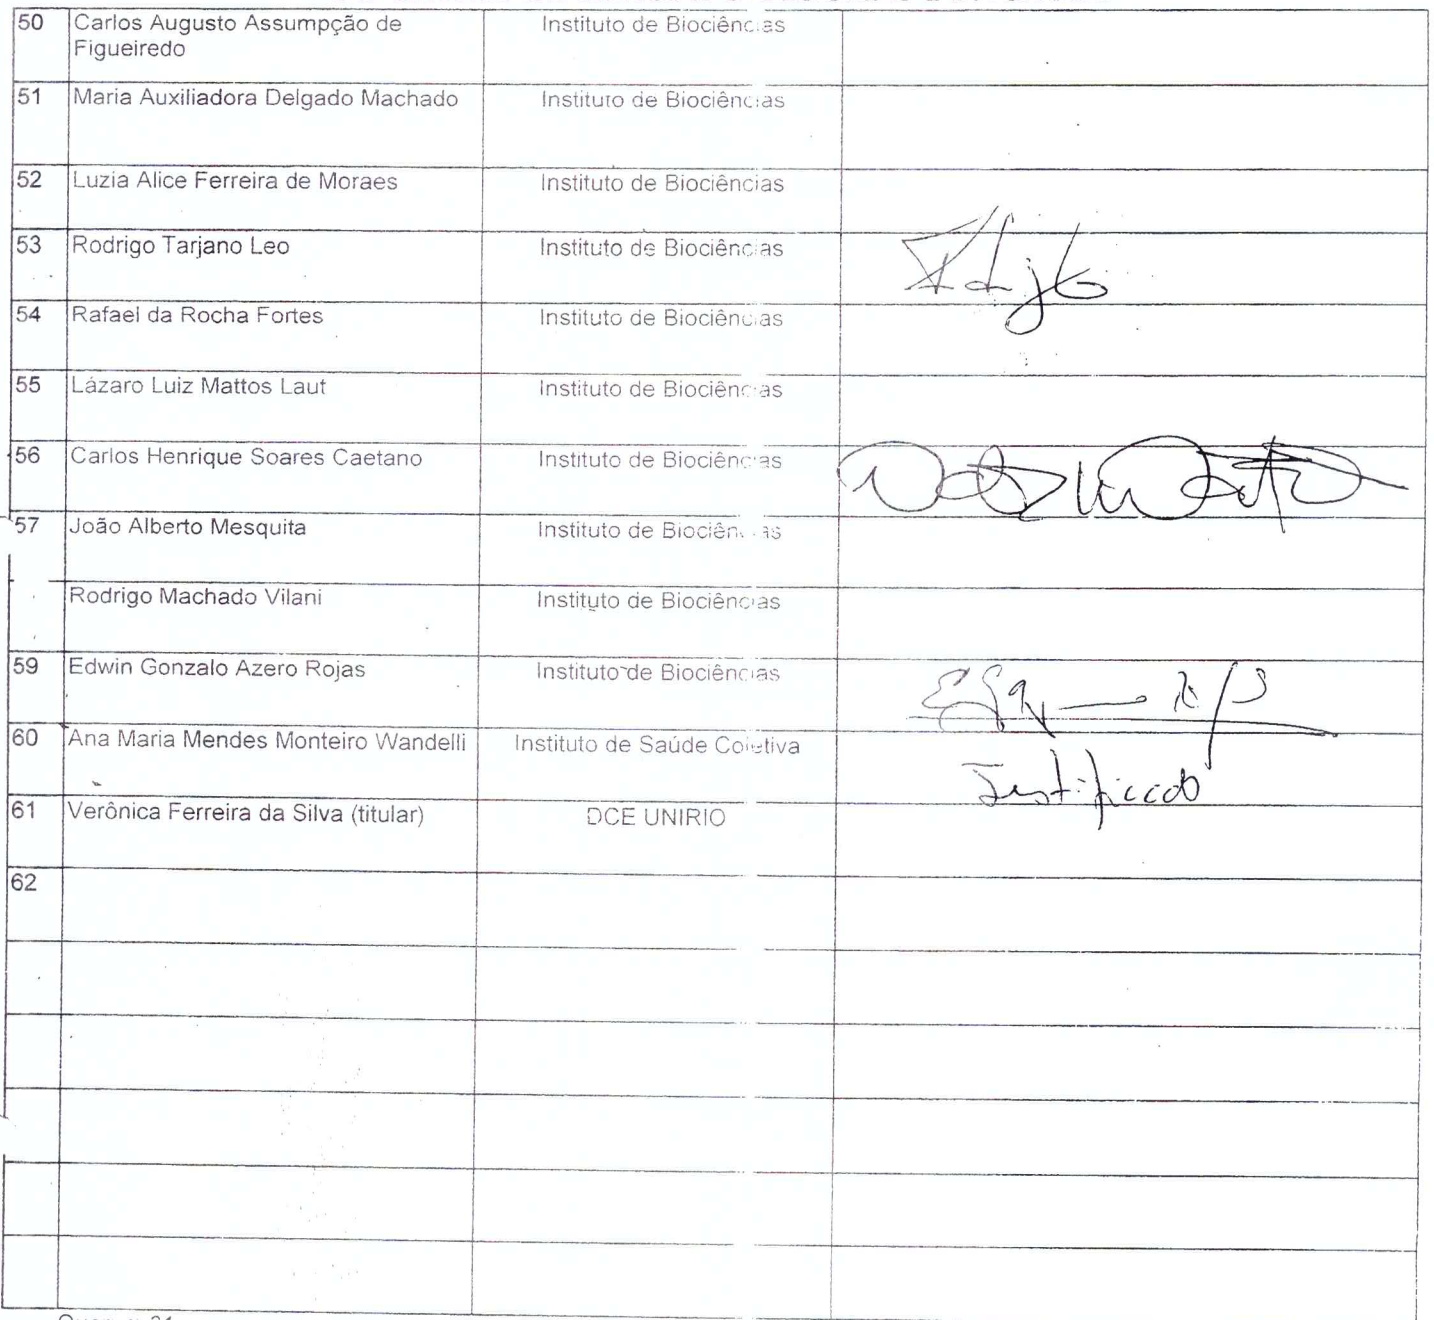 50 Carlos Augusto Assumpção de Figueiredo Instituto de Biociências
51 Maria Auxiliadora Delgado Machado Instituto de Biociências
52 Luzia Alice Ferreira de Moraes Instituto de Biociências
53 Rodrigo Tarjano Leo Instituto de Biociências
54 Rafael da Rocha Fortes Instituto de Biociências
55 Lázaro Luiz Mattos Laut Instituto de Biociências
56 Carlos Henrique Soares Caetano Instituto de Biociências
57 João Alberto Mesquita Instituto de Biociências
Rodrigo Machado Vilani Instituto de Biociências
59 Edwin Gonzalo Azero Rojas Instituto de Biociências
60 Ana Maria Mendes Monteiro Wandelli Instituto de Saúde Coletiva Justificado
61 Verônica Ferreira da Silva (titular) DCE UNIRIO
62